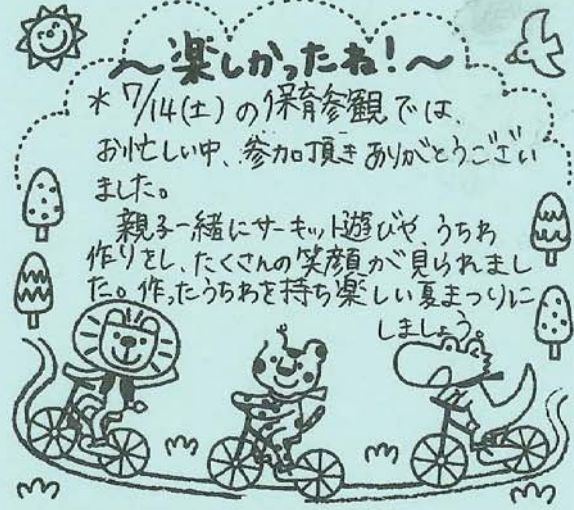 ～楽しかったね！～
＊7/14(土)の保育参観では、
お忙しい中、参加頂きありがとうござい
ました。
親子一緒にサーキット遊びや、うちわ
作りをし、たくさんの笑顔が見られまし
た。作ったうちわを持ち楽しい夏まつりに
しましょう。